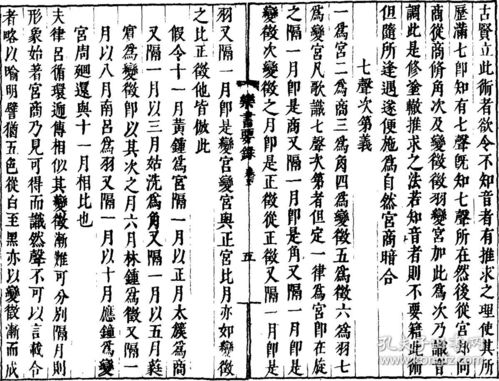 古賢立此術者欲令不知音者有推求之理使其所
歷滿七卽知有七聲旣知七聲所在然後從宮歸向
商從商脩角次及變徵徵羽變宮加此爲次乃識音
調此是修塗轍推求之法若知音者則不要藉此術
但隨所逢遇遂便施爲自然宮商暗合
七聲次第義
一爲宮二爲商三爲角四爲變徵五爲徵六爲羽七
爲變宮凡欲識七聲次第者但定一律爲宮卽在旋
之隔一月卽是商又隔一月卽是角又隔一月卽是
變徵次變徵之月卽是正徵從正徵又隔一月卽是
樂書要錄
五
羽又隔一月卽是變宮變宮與正宮比月亦如變徵
之比正徵他皆倣此
假令十一月黃鍾爲宮隔一月以正月太簇爲商
又隔一月以三月姑洗爲角又隔一月以五月蕤
賓爲變徵卽以其次之月六月林鍾爲徵又隔一
月以八月南呂爲羽又隔一月以十月應鍾爲變
宮周廻還與十一月相比也
夫律呂循環遞傳相似其變徵漸難可分別隔月則
形象始著宮商乃見可得而識然聲不可以言載今
者略以喻明譬猶五色從白至黑亦以變徵漸而成
孔夫子旧书网